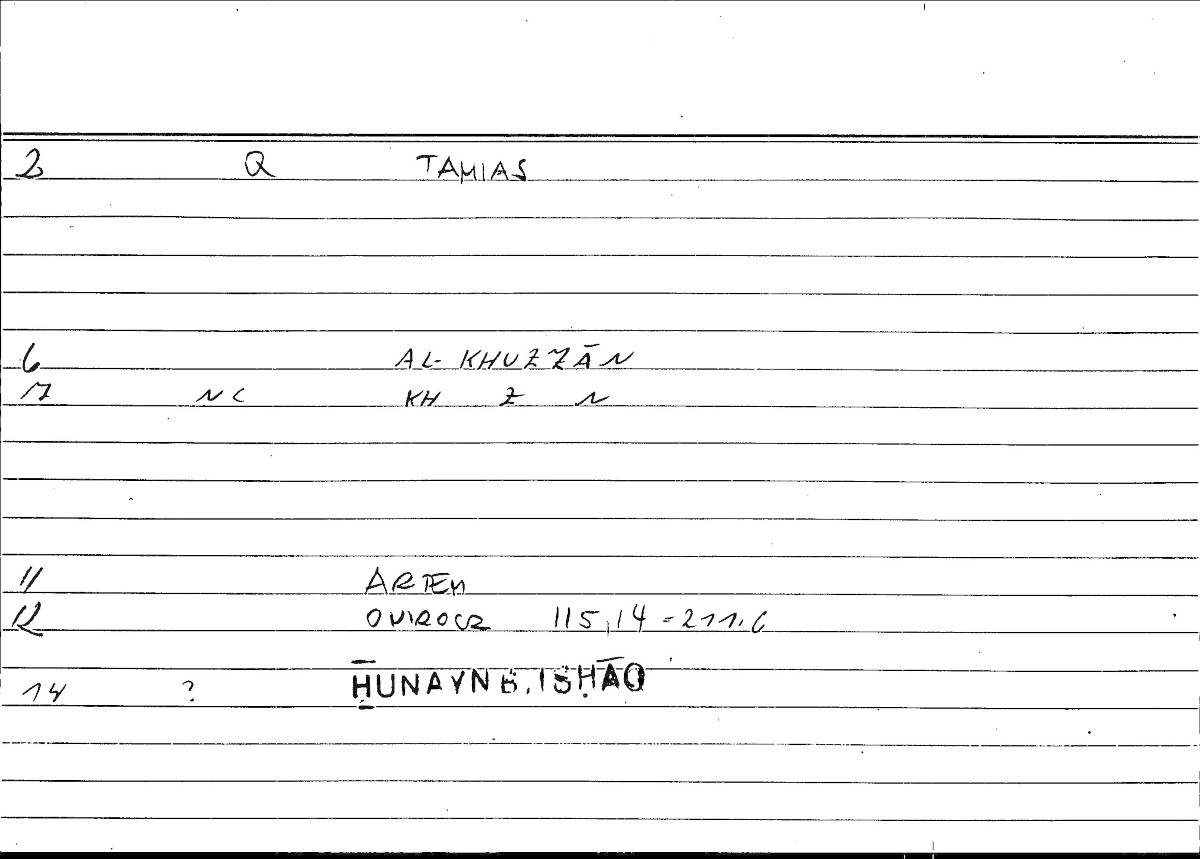 2 Q TAMIAS
6 AL-KHUZZĀN
7 NC KH Z N
11 ARTEM
12 ONIROCR 115,14-211.6
14 ? ḤUNAYN B. ISḤĀQ